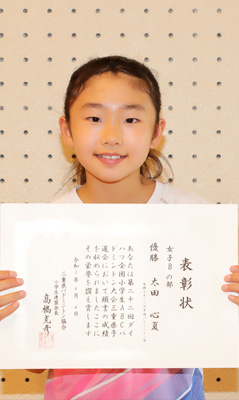 表彰状
女子Bの部
優勝 太田 心夏
あなたは第二十二回ダイ
ハツ全国小学生ABCバ
ドミントン大会三重県予
選会において頭書の成績
を収められましたここに
その栄誉を讃え賞します
三重県バドミントン協会
小学生連盟会長